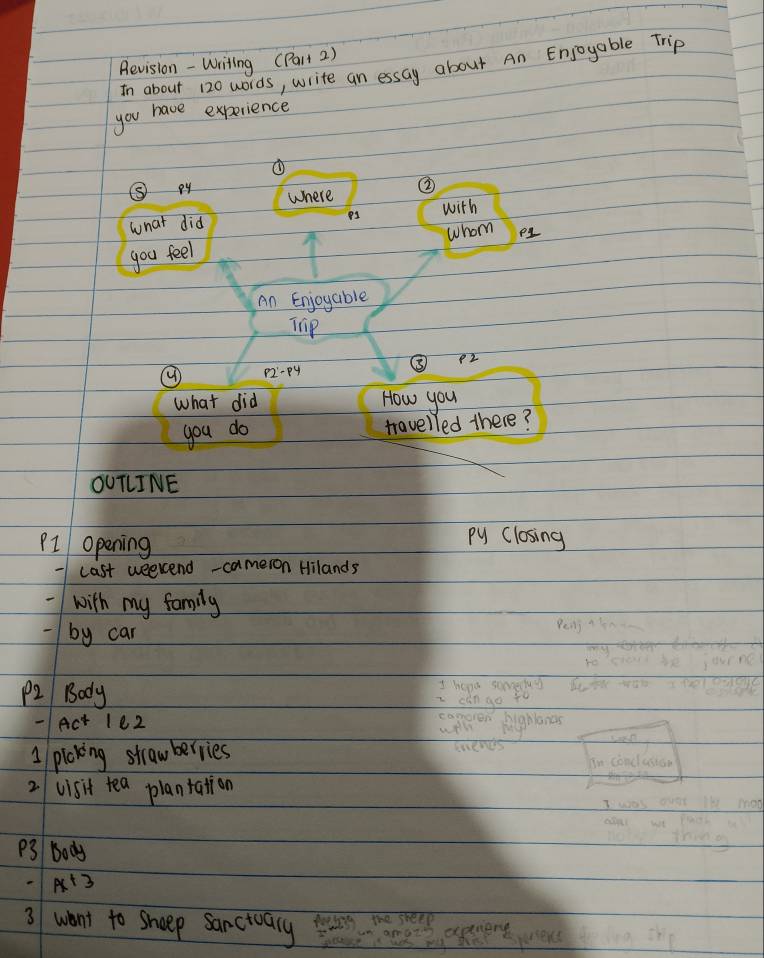 Revision - Writing (Part 2)
In about 120 words, write an essay about An Enjoyable Trip
you have experience
①
⑤ P4
②
where
P1
what did
you feel
with
whom
P1
An Enjoyable
Trip
④
P2-P4
③ P2
what did
you do
How you
travelled there?
OUTLINE
P1 Opening
P4 Closing
- Last weekend - cameron Hilands
- with my family
- by car
to the journey
P2 Body
I hope someday
I can go to
- Act 1 & 2
cameron highlands
with my
friends
1 picking strawberries
In conclusion
2. visit tea plantation
I was over the moon
thing
P3 Body
- Act 3
3 want to sheep Sanctuary
the sheep
experience
it was my first